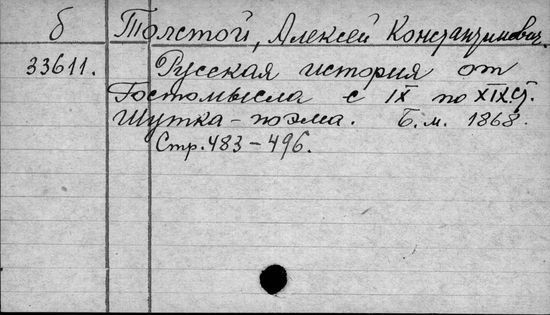 б Толстой, Алексей Константинович.
33611. Русская история от
Гостомысла с IX по XIX в.
Шутка-поэма. Б.м. 1868.
Стр. 483-496.